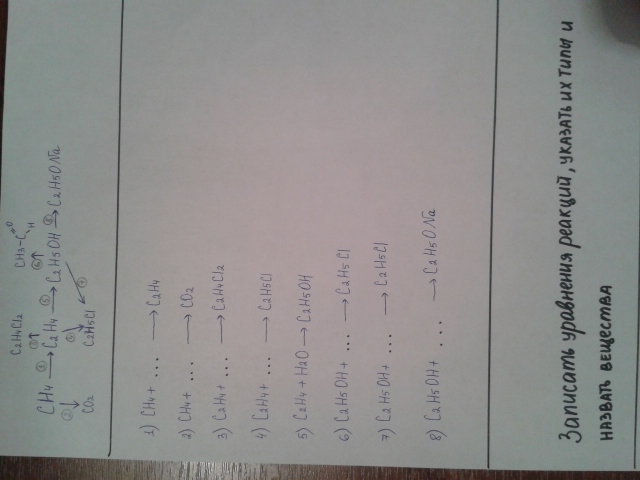 C2H4Cl2 CH3-C=O H
CH4 → C2H4 → C2H5OH → C2H5ONa
CO2 C2H5Cl
1) CH4 + ... → C2H4
2) CH4 + ... → CO2
3) C2H4 + ... → C2H4Cl2
4) C2H4 + ... → C2H5Cl
5) C2H4 + H2O → C2H5OH
6) C2H5OH + ... → C2H5Cl
7) C2H5OH + ... → C2H5Cl
8) C2H5OH + ... → C2H5ONa
Записать уравнения реакций, указать их типы и
назвать вещества